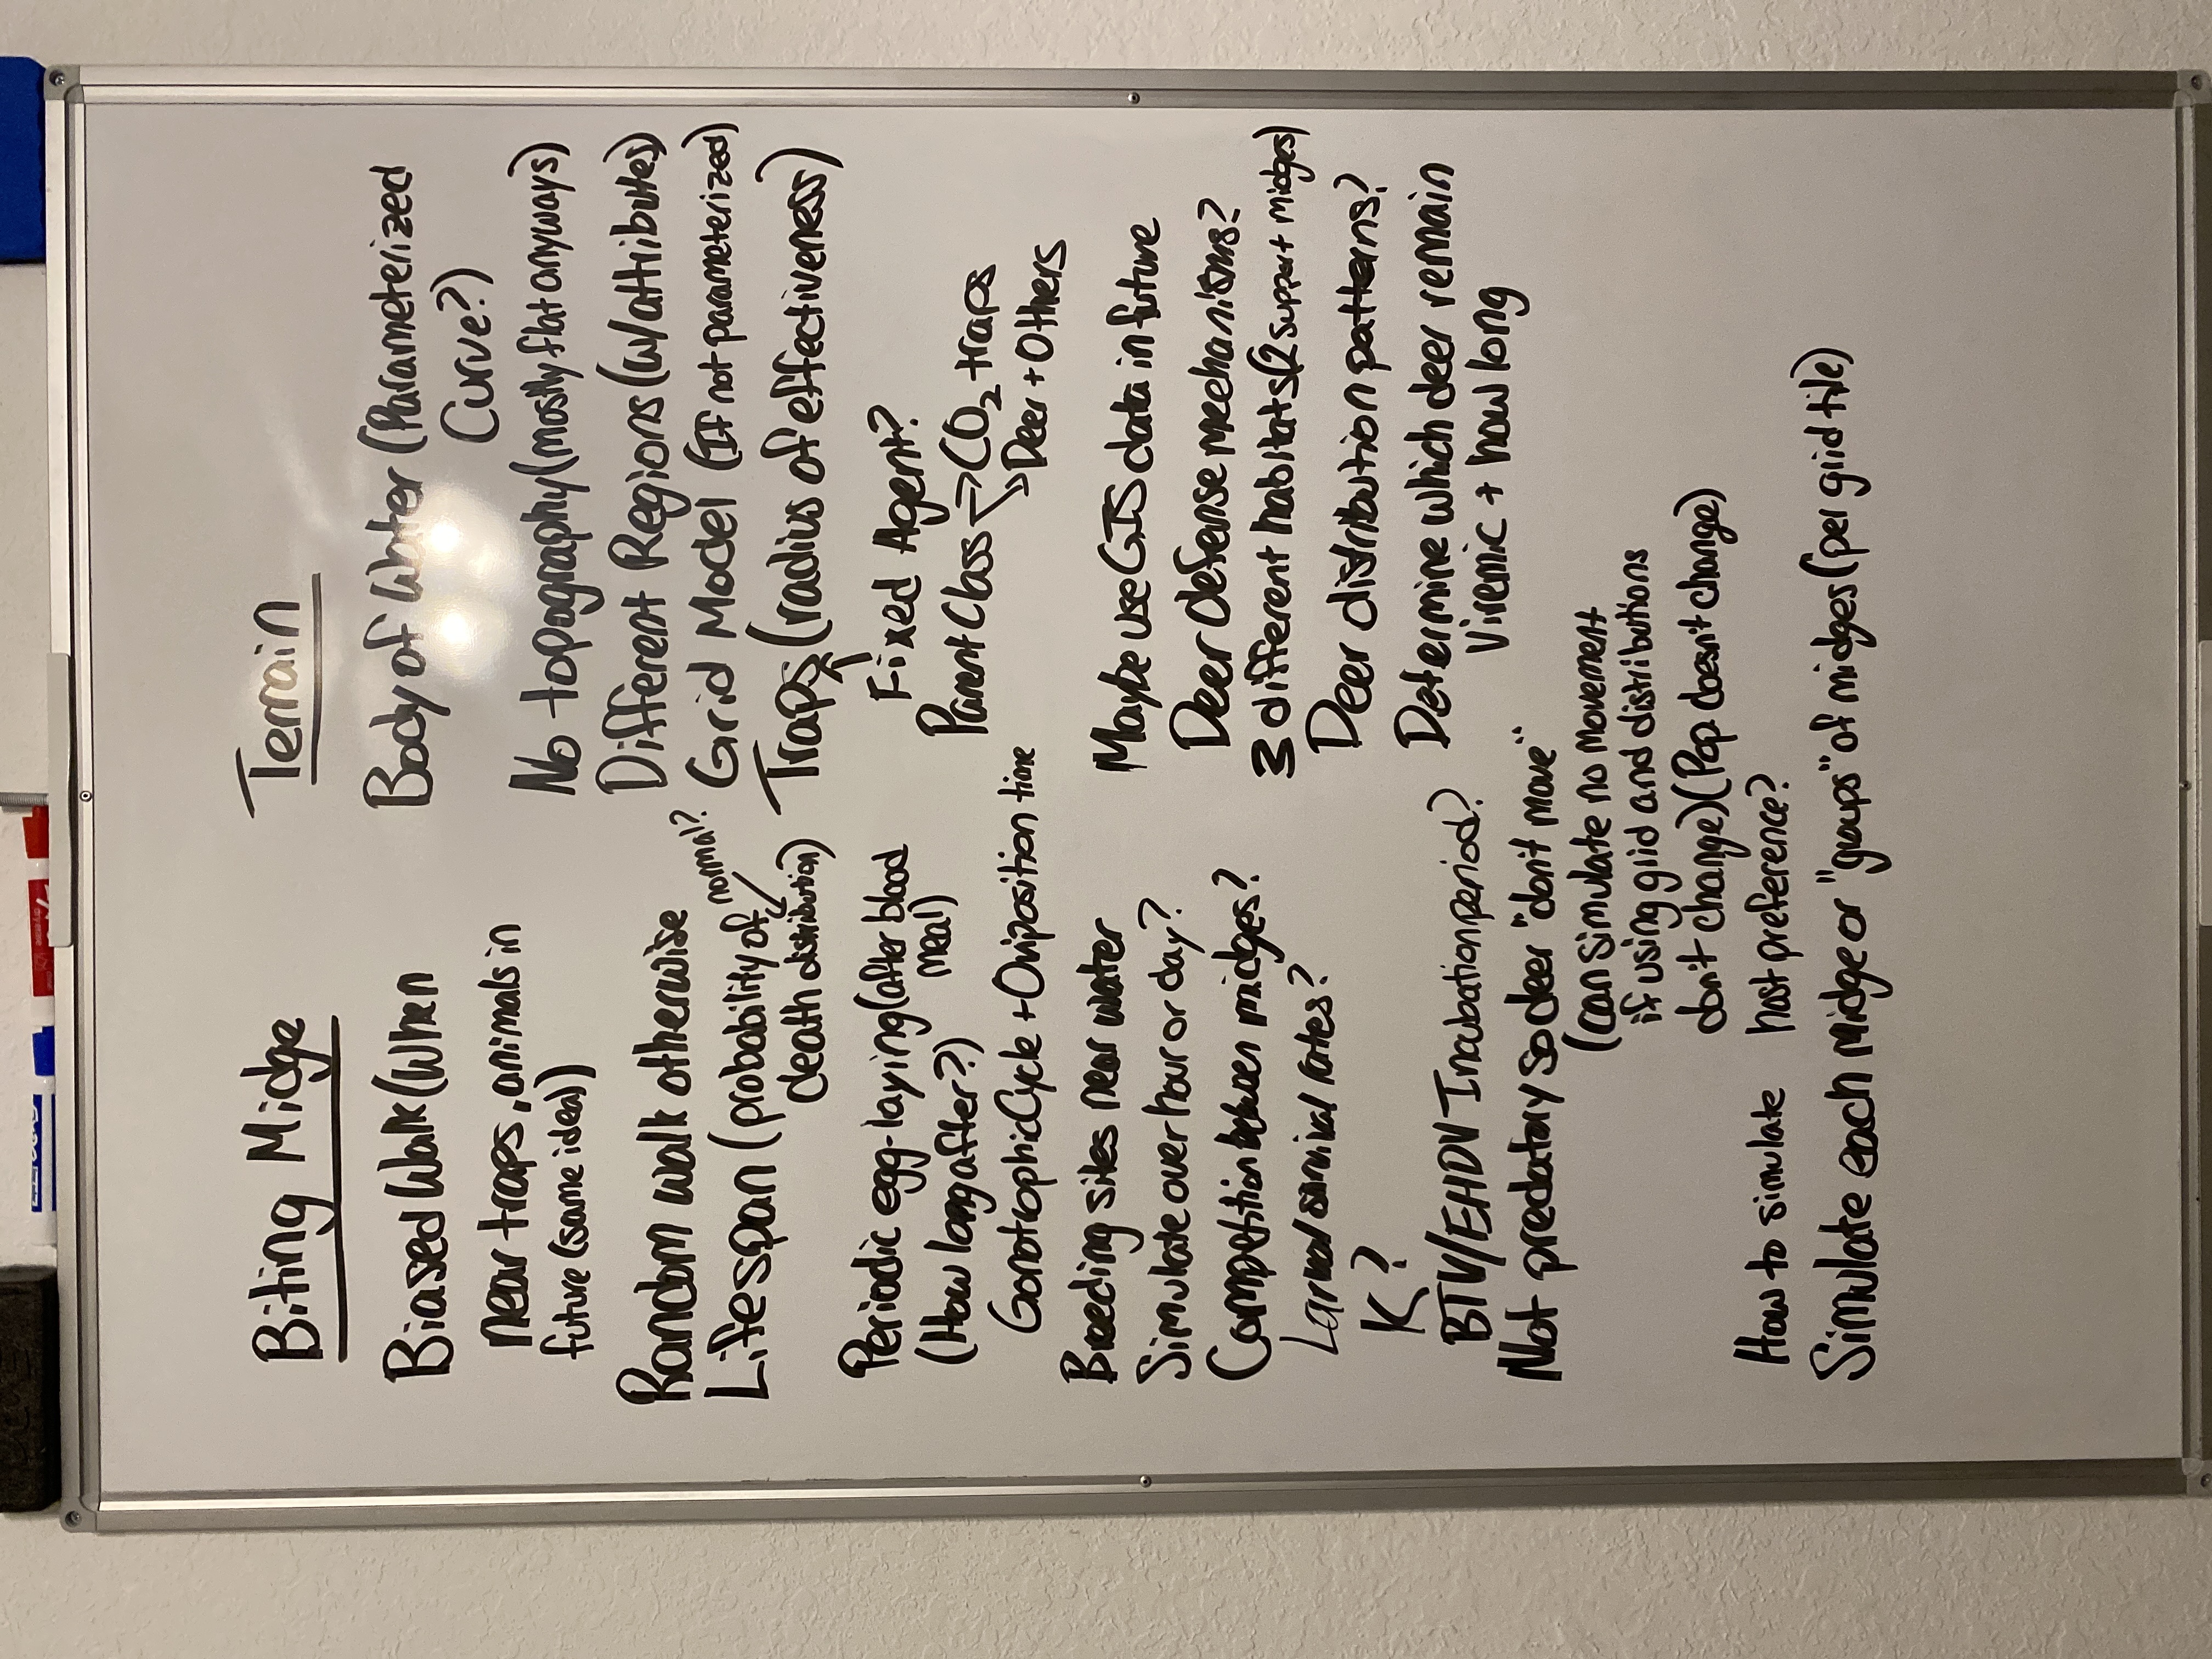 Biting Midge
Biased Walk (When
near traps, animals in
future (same idea))
Random walk otherwise
Lifespan (probability of
normal?
death distribution)
Periodic egg-laying (after blood
meal)
(How long after?)
Gonotrophic Cycle + Oviposition time
Breeding sites near water
Simulate over hour or day?
Competition between midges?
Larval survival rates?
K?
BTV/EHDV Incubation period?
Not predatory so deer "don't move"
(can simulate no movement
if using grid and distributions
don't change) (Pop. doesn't change)
How to simulate host preference?
Simulate each midge or "groups" of midges (per grid tile)
Terrain
Body of Water (Parameterized
Curve?)
No topography (mostly flat anyways)
Different Regions (w/attributes)
Grid Model (If not parameterized)
Traps (radius of effectiveness)
Fixed Agent?
Parent Class → CO₂ traps
Deer + Others
Maybe use GIS data in future
Deer defense mechanisms?
3 different habitats (2 support midges)
Deer distribution patterns?
Determine which deer remain
Viremic + how long